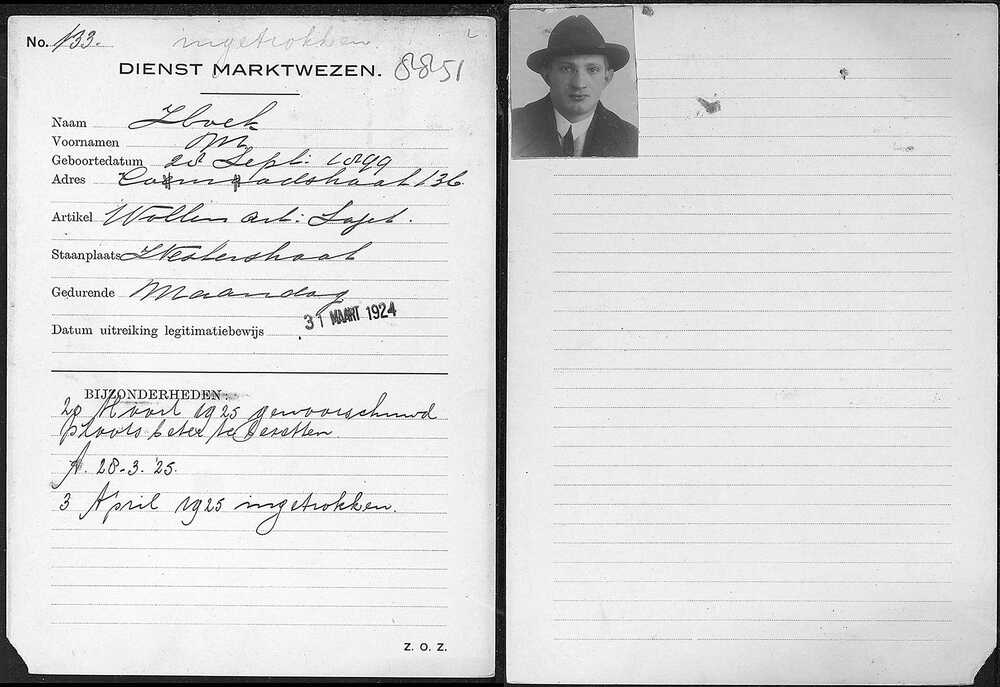 No. 133.
ingetrokken.
DIENST MARKTWEZEN. 8851
Naam
Voornamen M
Geboortedatum 28 Sept: 1899
Adres 136.
Artikel Wollen art: Sajet.
Staanplaats Westerstraat
Gedurende Maandag
Datum uitreiking legitimatiebewijs 31 MAART 1924
BIJZONDERHEDEN:
20 Maart 1925 gewaarschuwd
plaats beter te bezetten.
A. 28-3. '25.
3 April 1925 ingetrokken.
Z. O. Z.